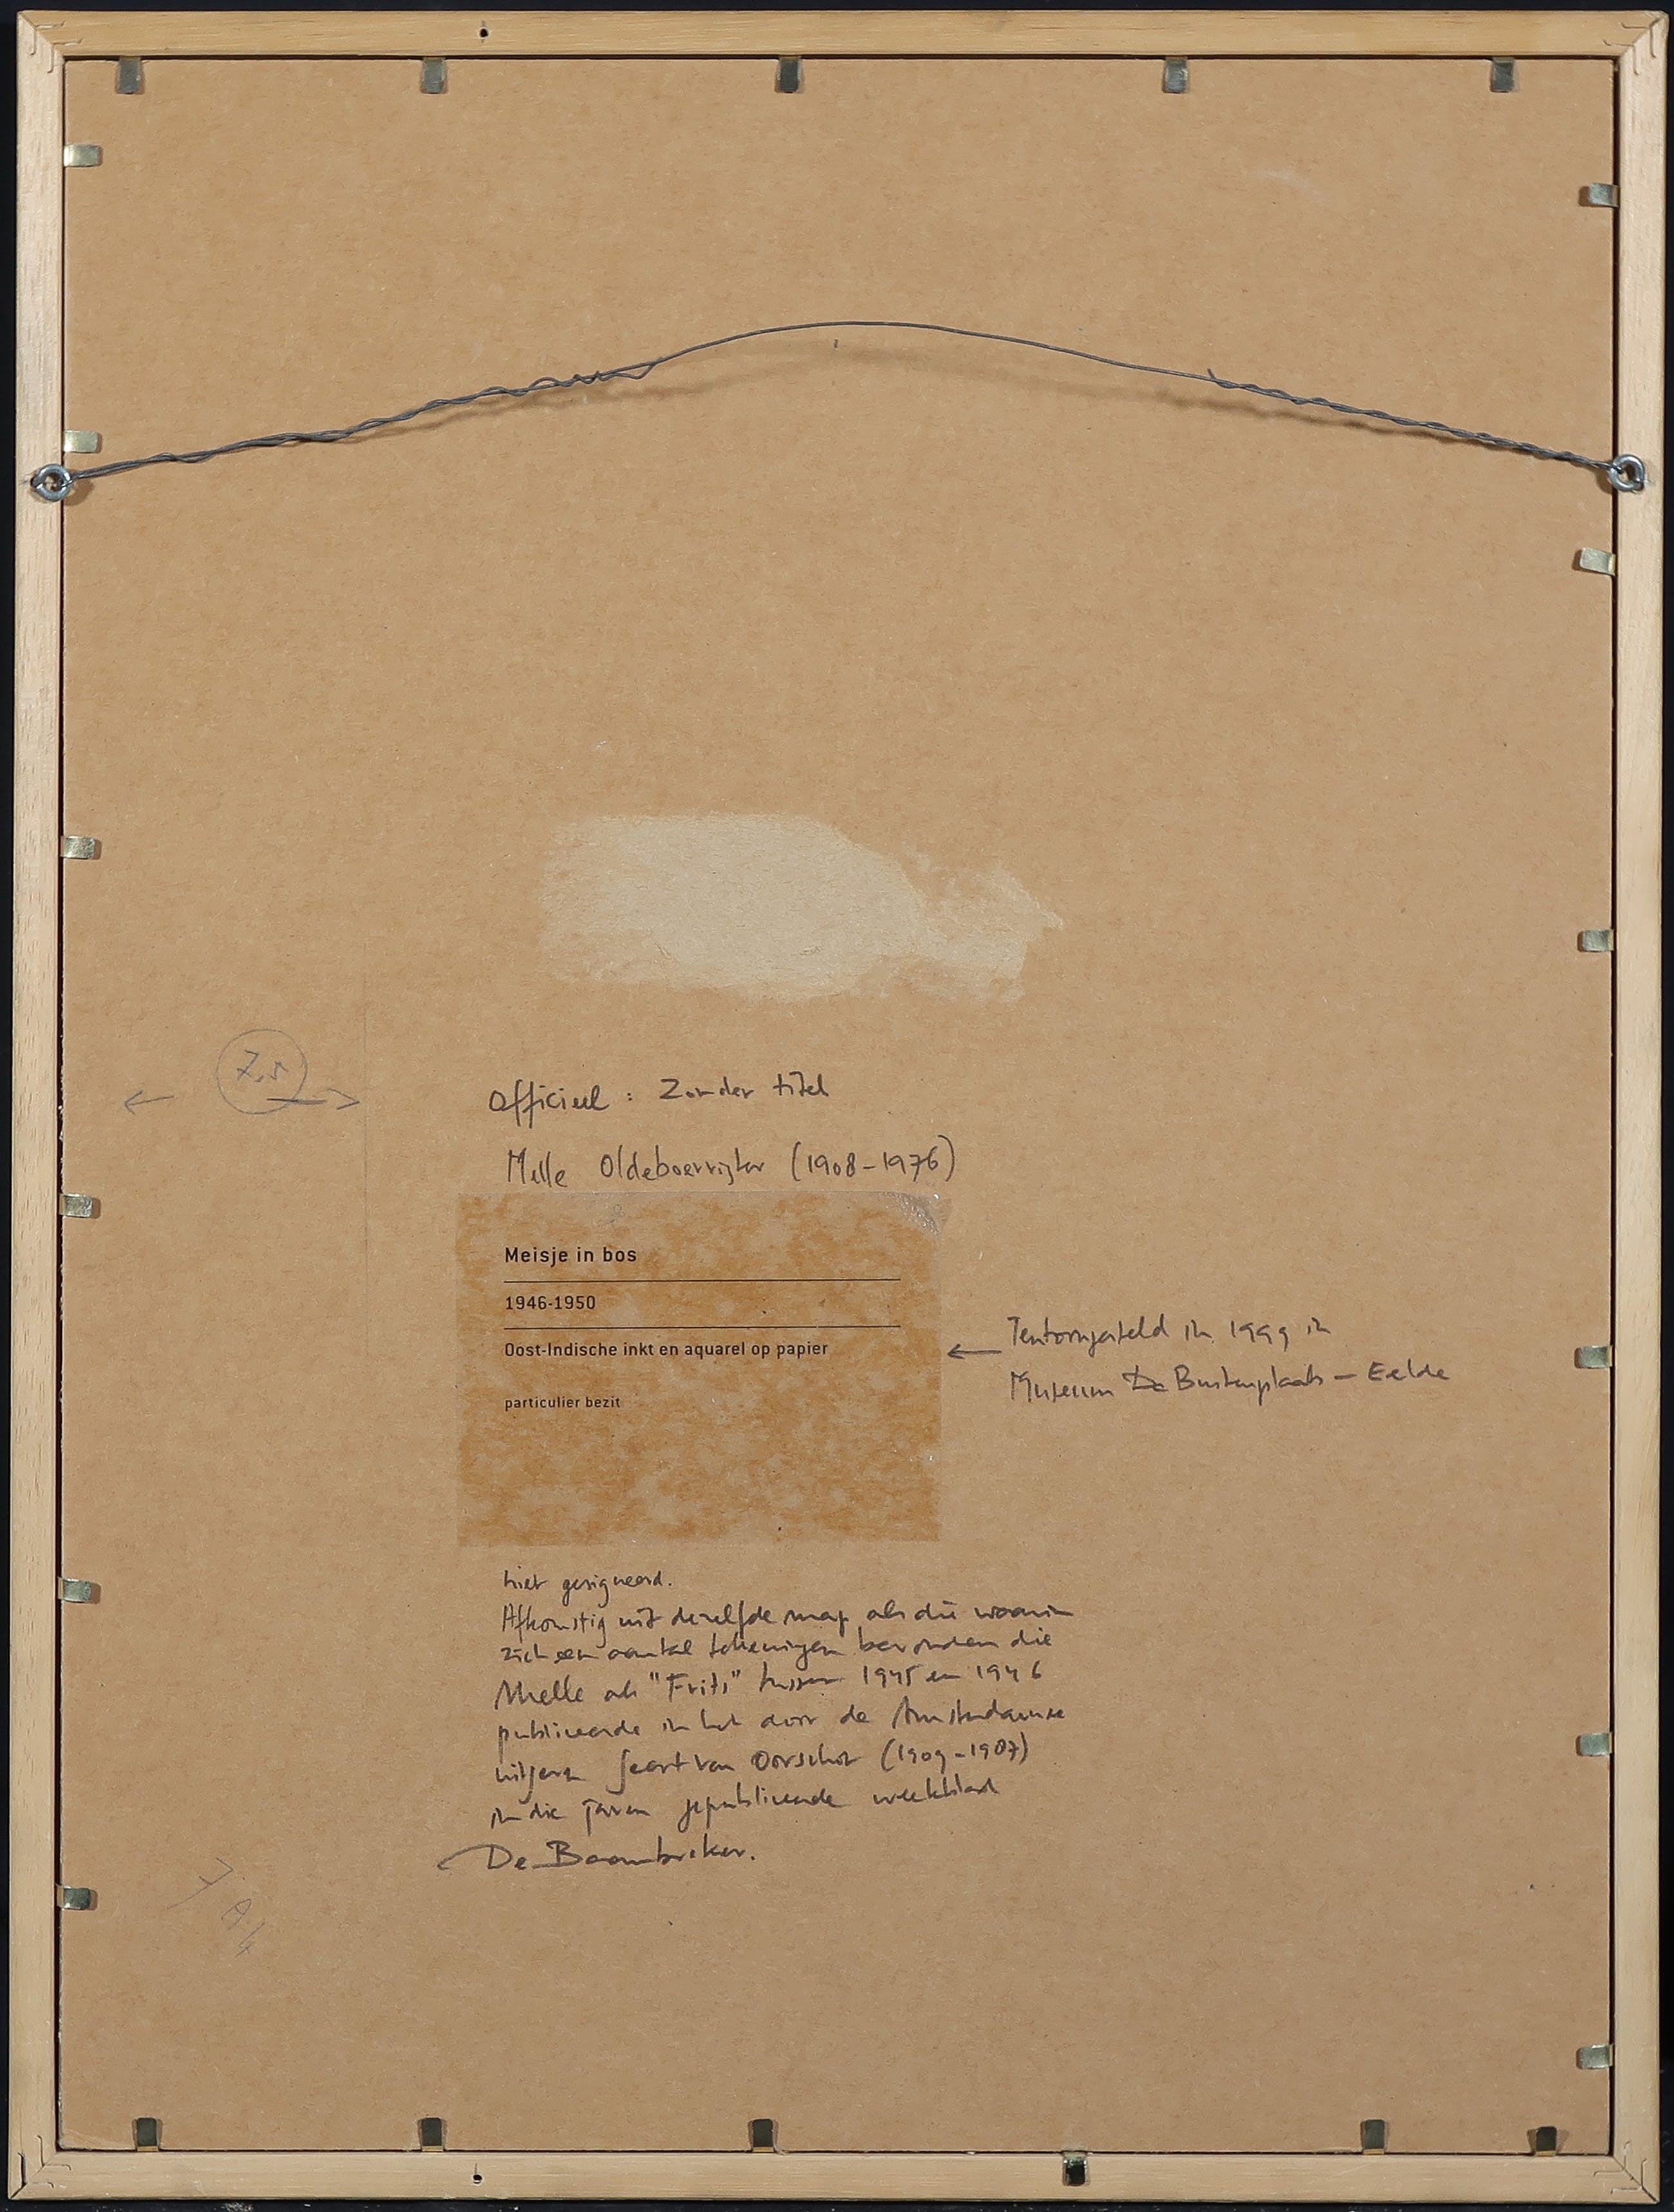 7,5
Officieel : Zonder titel
Melle Oldeboerrigter (1908-1976)
Meisje in bos
1946-1950
Oost-Indische inkt en aquarel op papier
particulier bezit
Tentoongesteld in 1999 in
Museum De Buitenplaats - Eelde
niet gesigneerd.
Afkomstig uit dezelfde map als die waarin
zich een aantal tekeningen bevonden die
Melle als "Frits" tussen 1945 en 1946
publiceerde in het door de Amsterdamse
uitgever Geert van Oorschot (1909-1987)
in die jaren gepubliceerde weekblad
De Baanbreker.